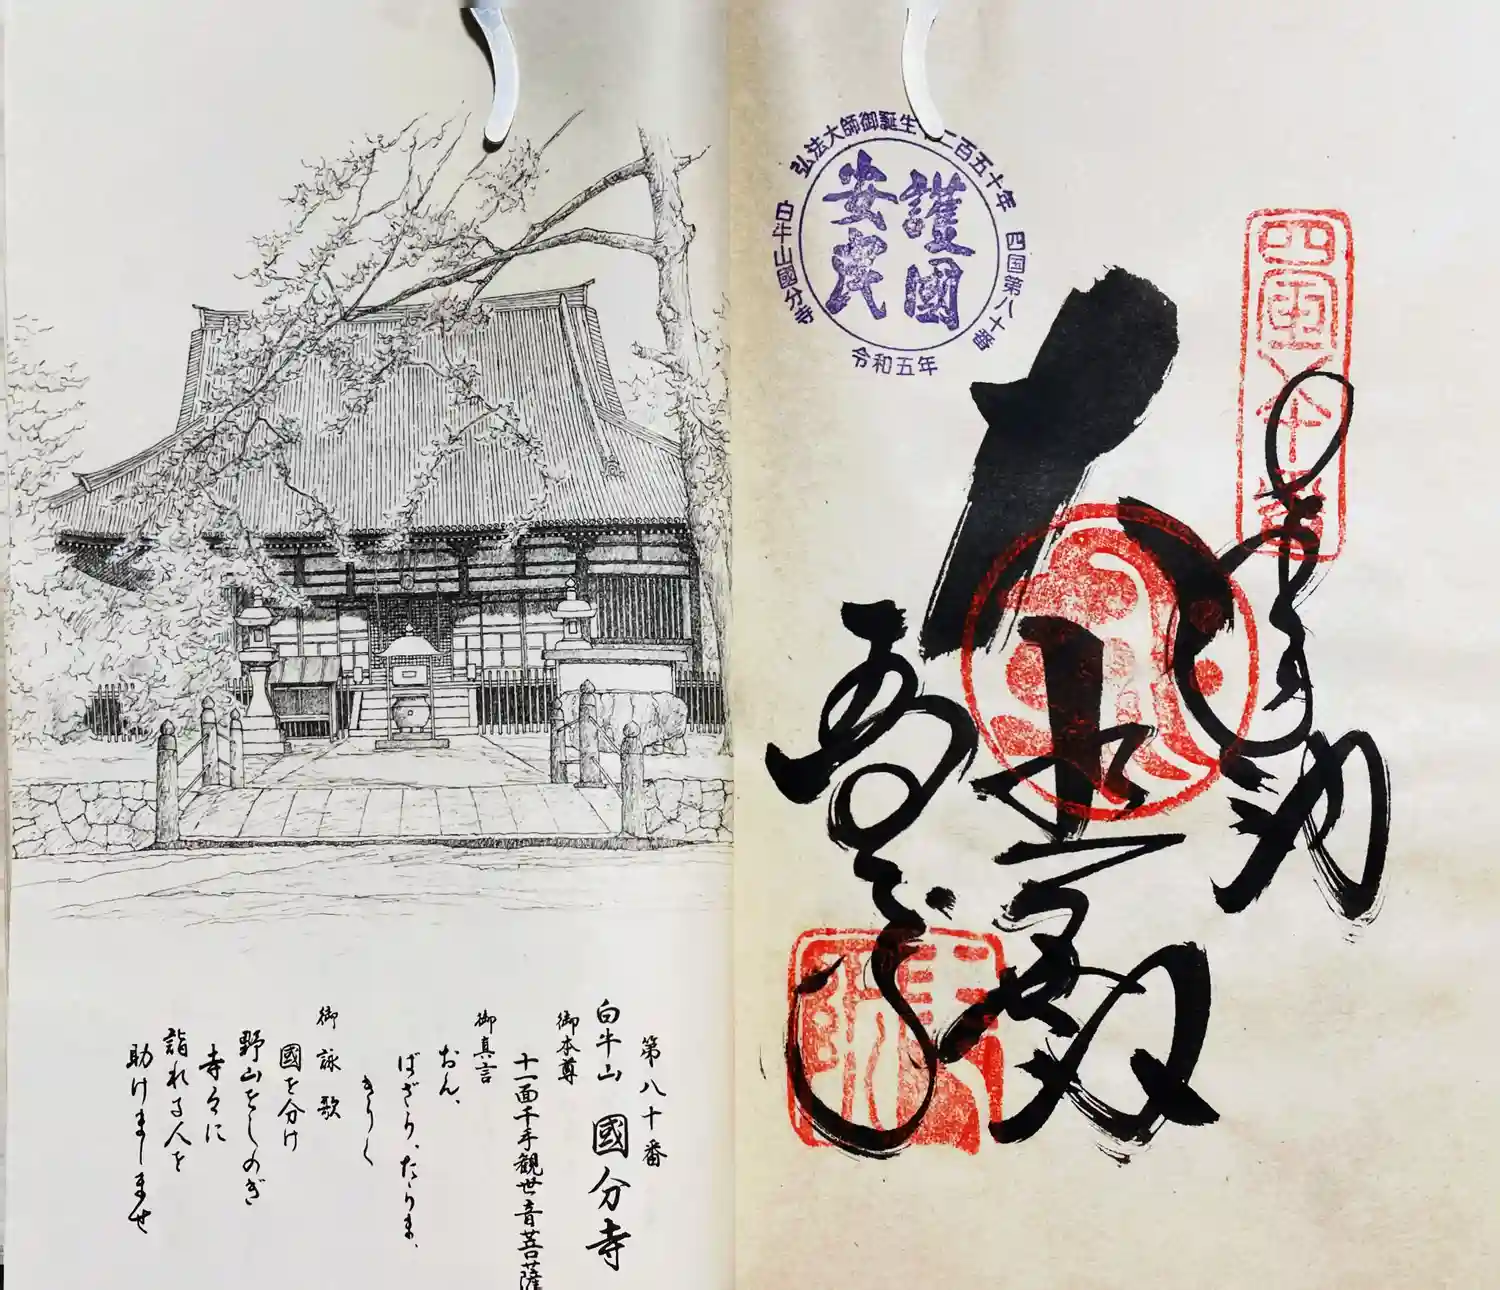 弘法大師御誕生千二百五十年
四国第八十番
白牛山國分寺
令和五年
護國
安民
四國八十番
奉納
第八十番
白牛山 國分寺
御本尊
十一面千手観世音菩薩
御真言
おん、
ばざら、たらま、
きりく
御詠歌
國を分け
野山をしのぎ
寺々に
詣れる人を
助けましませ